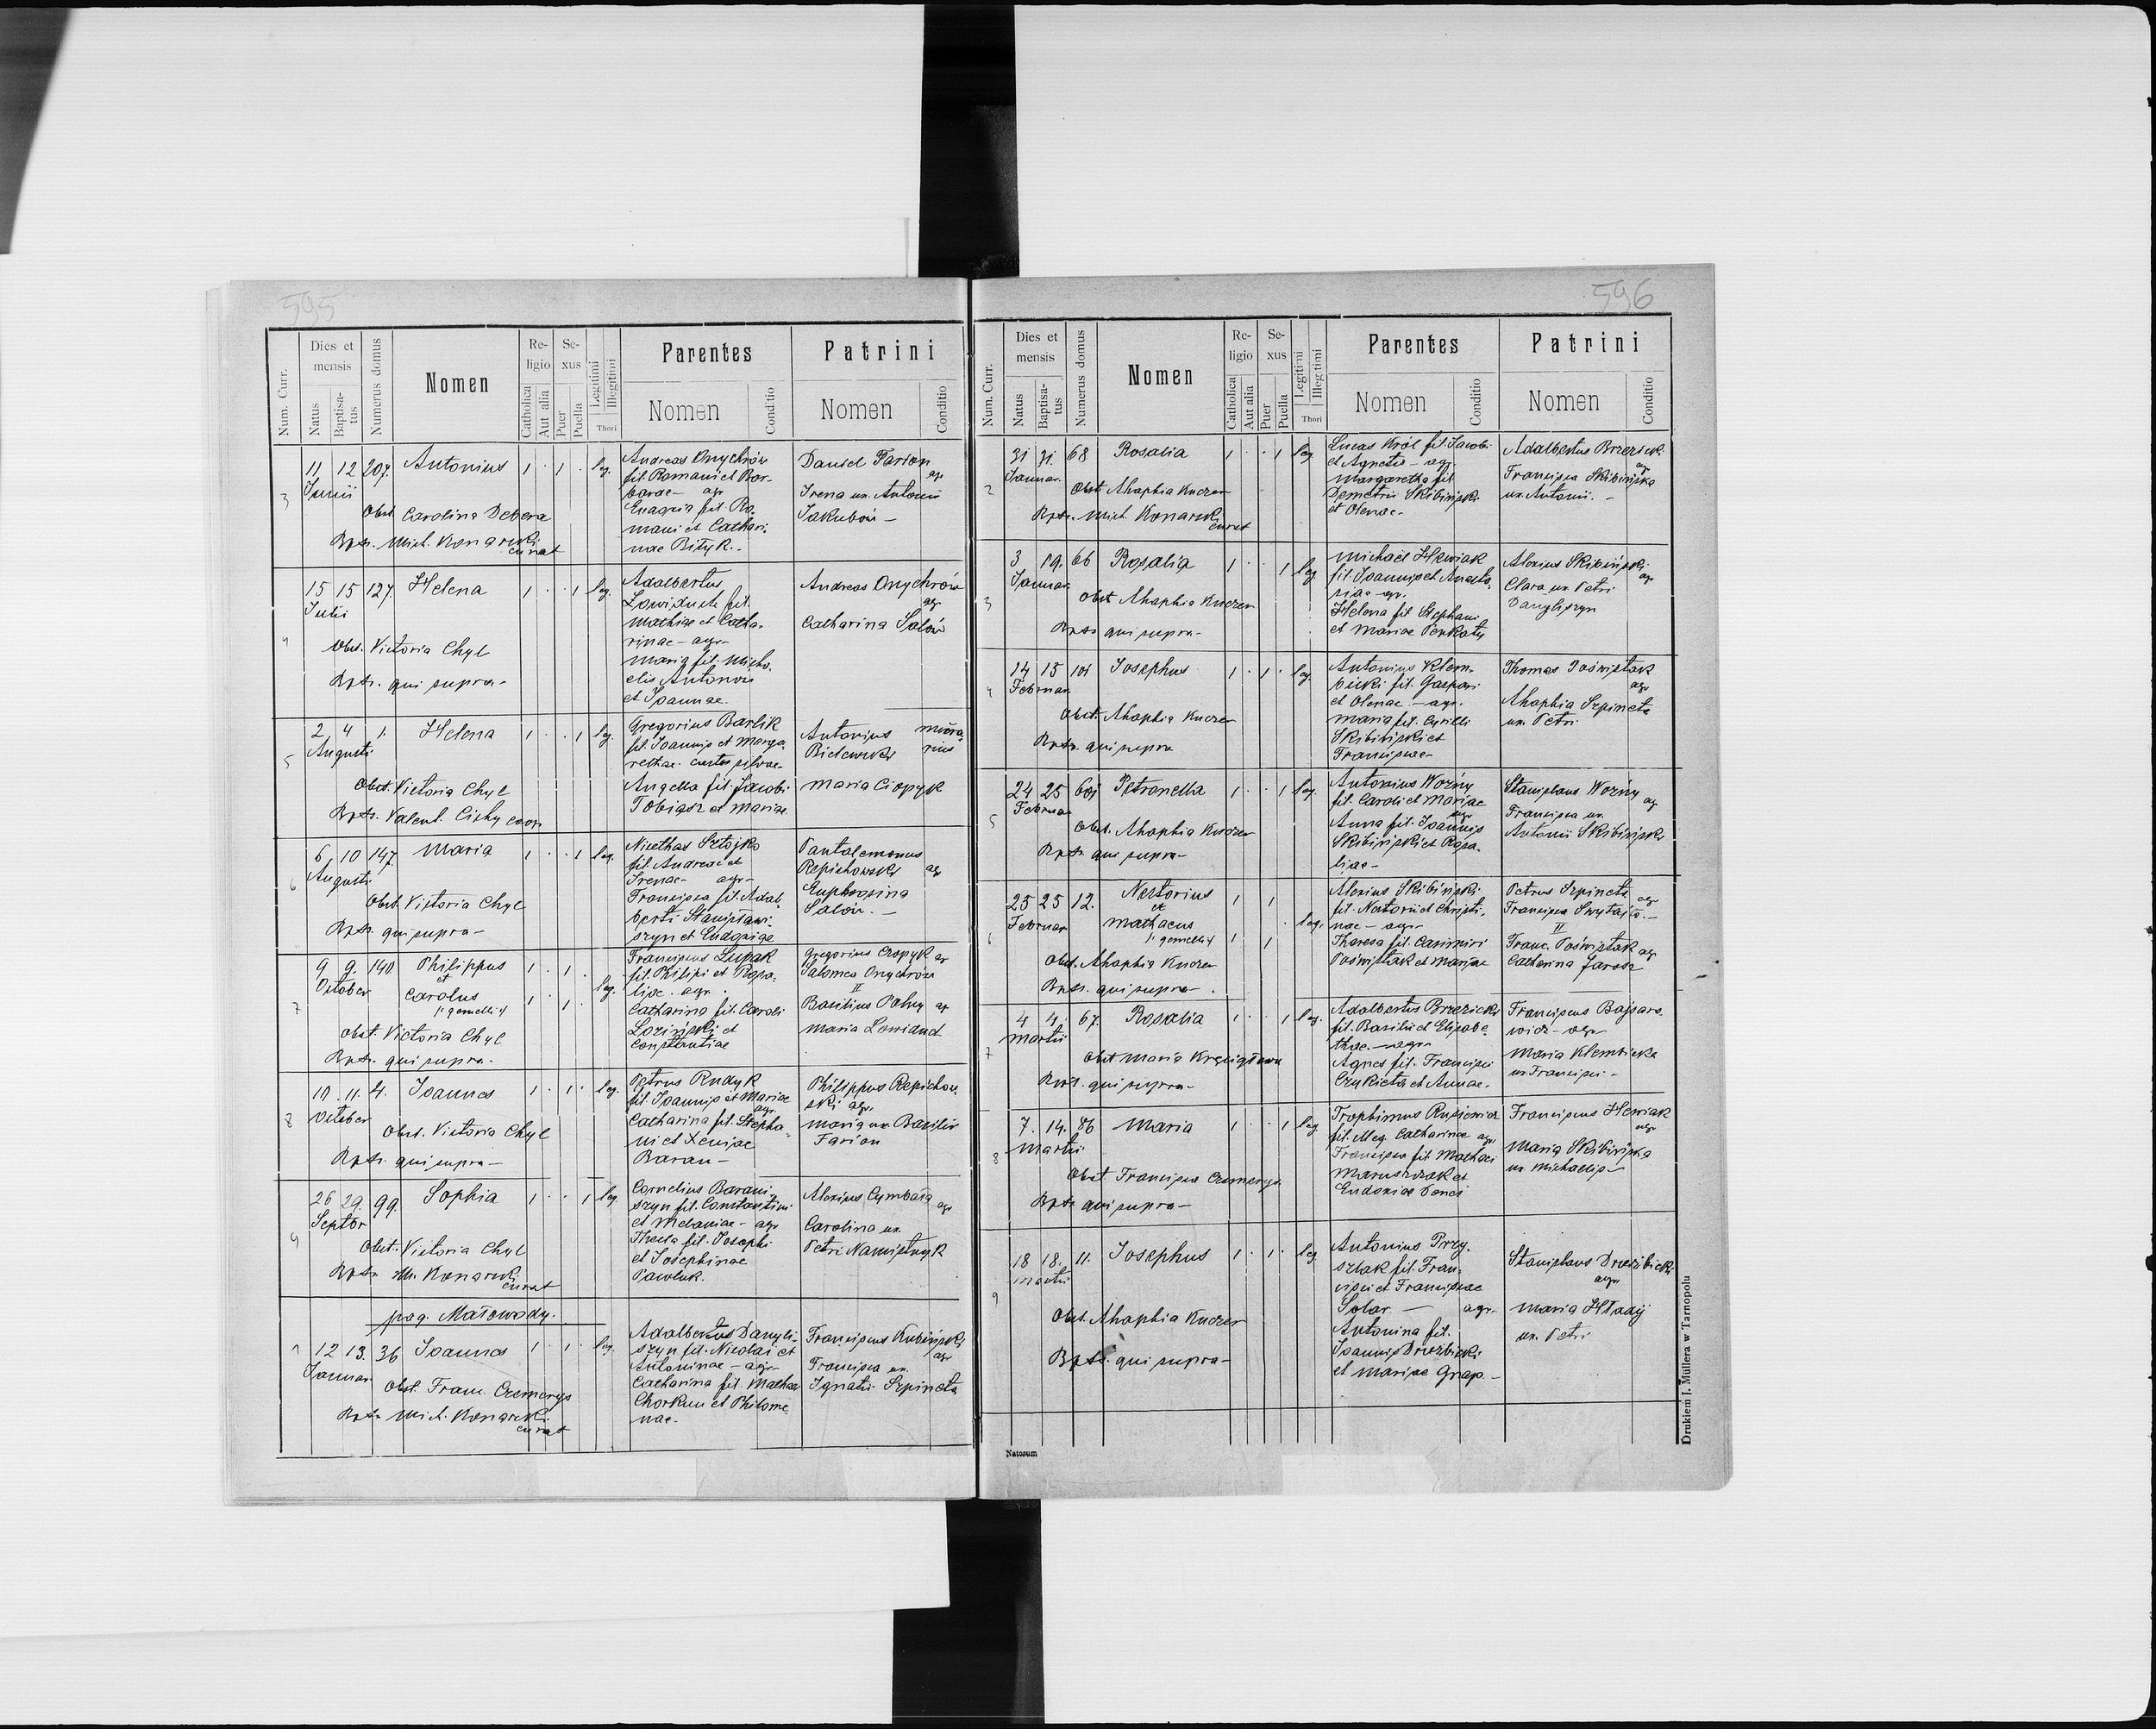 595
Num. Curr.
Dies et mensis
Natus
Baptisa-tus
Numerus domus
Nomen
Re-ligio
Catholica
Aut alia
Se-xus
Puer
Puella
Legitimi
Illegitimi
Thori
Parentes
Nomen
Conditio
Patrini
Nomen
Conditio
3 11 12 207. Antonius 1 · 1 · leg.
Junii
Obst. Carolina Debera
Bpts. Mich. Konarski
curat
Andreas Onychrów
fil. Romani et Bar-
barae - agr
fil. Ro-
mani et Cathari-
nae Bityk.
Daniel Farion
agr
Irena ux. Antonii
Jakubów -
4 15 15 127. Helena 1 · · 1 leg.
Julii
Obst. Victoria Chyl
Bpts. qui supra -
Adalbertus
fil.
Mathiae et Catha-
rinae - agr -
Maria fil. Micha-
elis Antonów
et Joannae.
Andreas Onychrów
agr
Catharina Salów
5 2 4 1. Helena 1 · · 1 leg.
Augusti
Obst. Victoria Chyl
Bpts. Valent. Cichy coop
Gregorius Barlik
fil. Joannis et Marga-
rethae. custos silvae
Angella fil. Jacobi
Tobiasz et Mariae
Antonius
Bielewski
Maria Ciopyk
6 6 10 147. Maria 1 · · 1 leg.
Augusti
Obst. Victoria Chyl
Bpts. qui supra -
Nicethas Sztojko
fil. Andreae et
Irenae - agr -
Francisca fil. Adal-
berti Stanisławi-
szyn et Eudoxiae
Pantalemonus
Repichowski agr
Euphrosina
Salów. -
7 9 9. 140 Philippus 1 · 1 ·
October et leg.
Carolus 1 · 1 ·
/: gemelli :/
Obst. Victoria Chyl
Bpts. qui supra -
Franciscus Łupak
fil. Philipi et Rosa-
liae. agr.
Catharina fil. Caroli
Łozinski et
Constantiae
Gregorius Czopyk agr
Salomea Onychrów
II
Basilius Palny agr
Maria
8 10. 11. 4. Joannes 1 · 1 · leg.
October
Obst. Victoria Chyl
Bpts. qui supra -
Petrus Rudyk
fil. Joannis et Mariae
agr.
Catharina fil. Stepha-
ni et Xeniae
Baran -
Philippus Repichow-
ski agr.
Maria ux. Basilii
Farion
9 26 29. 99. Sophia 1 · · 1 leg
Septbr
Obst. Victoria Chyl
Bpts. M. Konarski
curat
Cornelius Barani-
szyn fil. Constantini
et Melaniae - agr
Thecla fil. Josephi
et Josephinae
Pawluk.
Alexius Cymbała
agr
Carolina ux.
Petri Namistnyk
pag. Małowody.
1 12 13. 36 Joannes 1 · 1 · leg.
Januar.
Obst. Franc. Czemerys
Bpts. Mich. Konarski
curat
Adalbertus Danyli-
szyn fil. Nicolai et
Antoninae - agr -
Catharina fil. Mathaei
Chorkun et Philome-
nae.
Franciscus Kubiński
agr
Francisca ux.
Ignatii Szpineta
596
Num. Curr.
Dies et mensis
Natus
Baptisa-tus
Numerus domus
Nomen
Re-ligio
Catholica
Aut alia
Se-xus
Puer
Puella
Legitimi
Illegitimi
Thori
Parentes
Nomen
Conditio
Patrini
Nomen
Conditio
2 31 31. 68 Rosalia 1 · · 1 leg
Januar.
Obst. Ahaphia Kuczer
Bpts. Mich. Konarski
curat
Lucas Król fil. Jacobi
et Agnetis - agr.
Margaretha fil.
Demetrii Skibiński
et Olenae -
Adalbertus Brzezicki
agr
Francisca Skibińska
ux. Antonii. -
3 3 19. 66 Rosalia 1 · · 1 leg
Januar.
Obst Ahaphia Kuczer
Bpts qui supra -
Michael Hewiak
fil. Joannis et Anasta-
siae agr.
Helena fil. Stephani
et Mariae
Alexius Skibiński
agr
Clara ux. Petri
Danyliszyn
4 14 15 101 Josephus 1 · 1 · leg.
Februar.
Obst. Ahaphia Kuczer
Bpts. qui supra
Antonius Klem-
bicki fil. Gaspari
et Olenae. - agr.
Maria fil. Cyrilli
Skibiński et
Franciscae -
Thomas Poświstak
agr
Ahaphia Szpineta
ux. Petri
5 24 25 Petronella 1 · · 1 leg
Februar
Obst. Ahaphia Kuczer
Bpts. qui supra -
Antonius Woźny
fil. Caroli et Mariae
agr
Anna fil. Joannis
Skibiński et Rosa-
liae -
Stanislaus Woźny agr
Francisca ux.
Antonii Skibiński
6 25 25 12. Nestorius 1 1
Februar et leg.
Mathaeus 1 1
/: gemelli :/
Obst. Ahaphia Kuczer
Bpts. qui supra - .
Alexius Skibiński
fil. Nestorii et Christi-
nae - agr -
Theresa fil. Casimiri
Poświstak et Mariae
Petrus Szpineta agr
Francisca
II
Franc. Poświstak agr
Catherina Jarosz
7 4 4. 67. Rosalia 1 · · 1 leg.
Martii
Obst Maria
Bpts. qui supra -
Adalbertus Brzezicki
fil. Basilii et Elisabe-
thae. - agr -
Agnes fil. Francisci
et Annae.
Franciscus Bajsaro-
wicz - agr -
Maria Klembicka
ux. Francisci -
8 7. 14. 86 Maria 1 · · 1 leg
Martii
Obst Francisca Czemerys.
Bpts qui supra -
Trophimus Rusiewicz
fil. illeg. Catharinae agr
Francisca fil. Mathaei
Maruszczak et
Eudoxiae
Franciscus Hewiak
agr
Maria Skibińska
ux. Michaelis -
9 18 18. 11. Josephus 1 · 1 · leg
Martii
Obst. Ahaphia Kuczer
Bpts. qui supra -
Antonius Przy-
szlak fil. Fran-
cisci et Franciscae
Solar - agr.
Antonina fil.
Joannis Druzbicki
et Mariae Gnap -
Stanislaus Druzbicki
agr
Maria Hładij
ux. Petri
Natorum
Drukiem J. Müllera w Tarnopolu